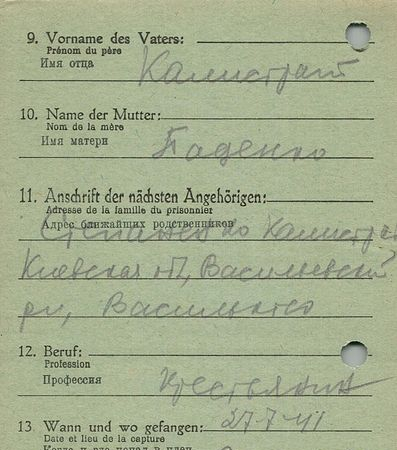 9. Vorname des Vaters:
Prénom du père
Имя отца
Калистрат
10. Name der Mutter:
Nom de la mère
Имя матери
Баденко
11. Anschrift der nächsten Angehörigen:
Adresse de la famille du prisonnier
Адрес ближайших родственников
Калистра
Киевская Васильевский
12. Beruf:
Profession
Профессия
Крестьянин
13 Wann und wo gefangen: 27-7-41
Date et lieu de la capture